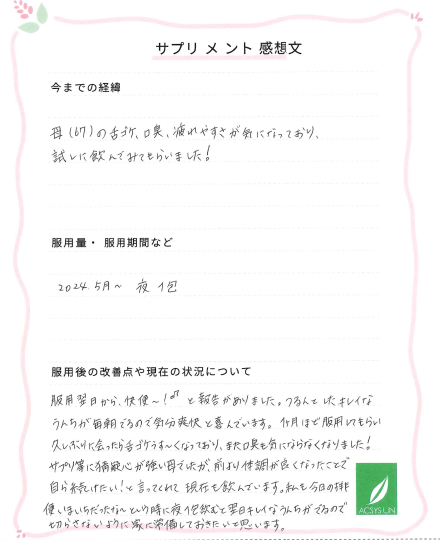 サプリメント感想文
今までの経緯
母(67)の舌ゴケ、口臭、疲れやすさが気になっており、
試しに飲んでみてもらいました!
服用量・服用期間など
2024.5月〜 夜 1包
服用後の改善点や現在の状況について
服用翌日から、快便〜!♂と報告がありました。つるんとしたキレイな
うんちが毎朝でるので気分爽快と喜んでいます。1ヶ月ほど服用してもらい
久しぶりに会ったら舌ゴケうす〜くなっており、また口臭も気にならなくなりました!
サプリ等に猜疑心が強い母でしたが、前より体調が良くなったことで
自ら続けたい!と言ってくれて現在も飲んでいます。私も今日の排
便いまいちだったな〜という時に夜1包飲むと翌日キレイなうんちがでるので
切らさないように家に常備しておきたいと思います。
ACSYSLIN